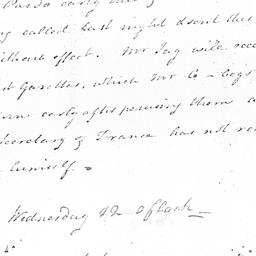 early
ng called last night & sent this
without effect. Mr Jay will rece
st Gazettes, which Mr G— begs
urn early after perusing them a
Secretary of France has not re
himself.
Wednesday 12 o Clock—